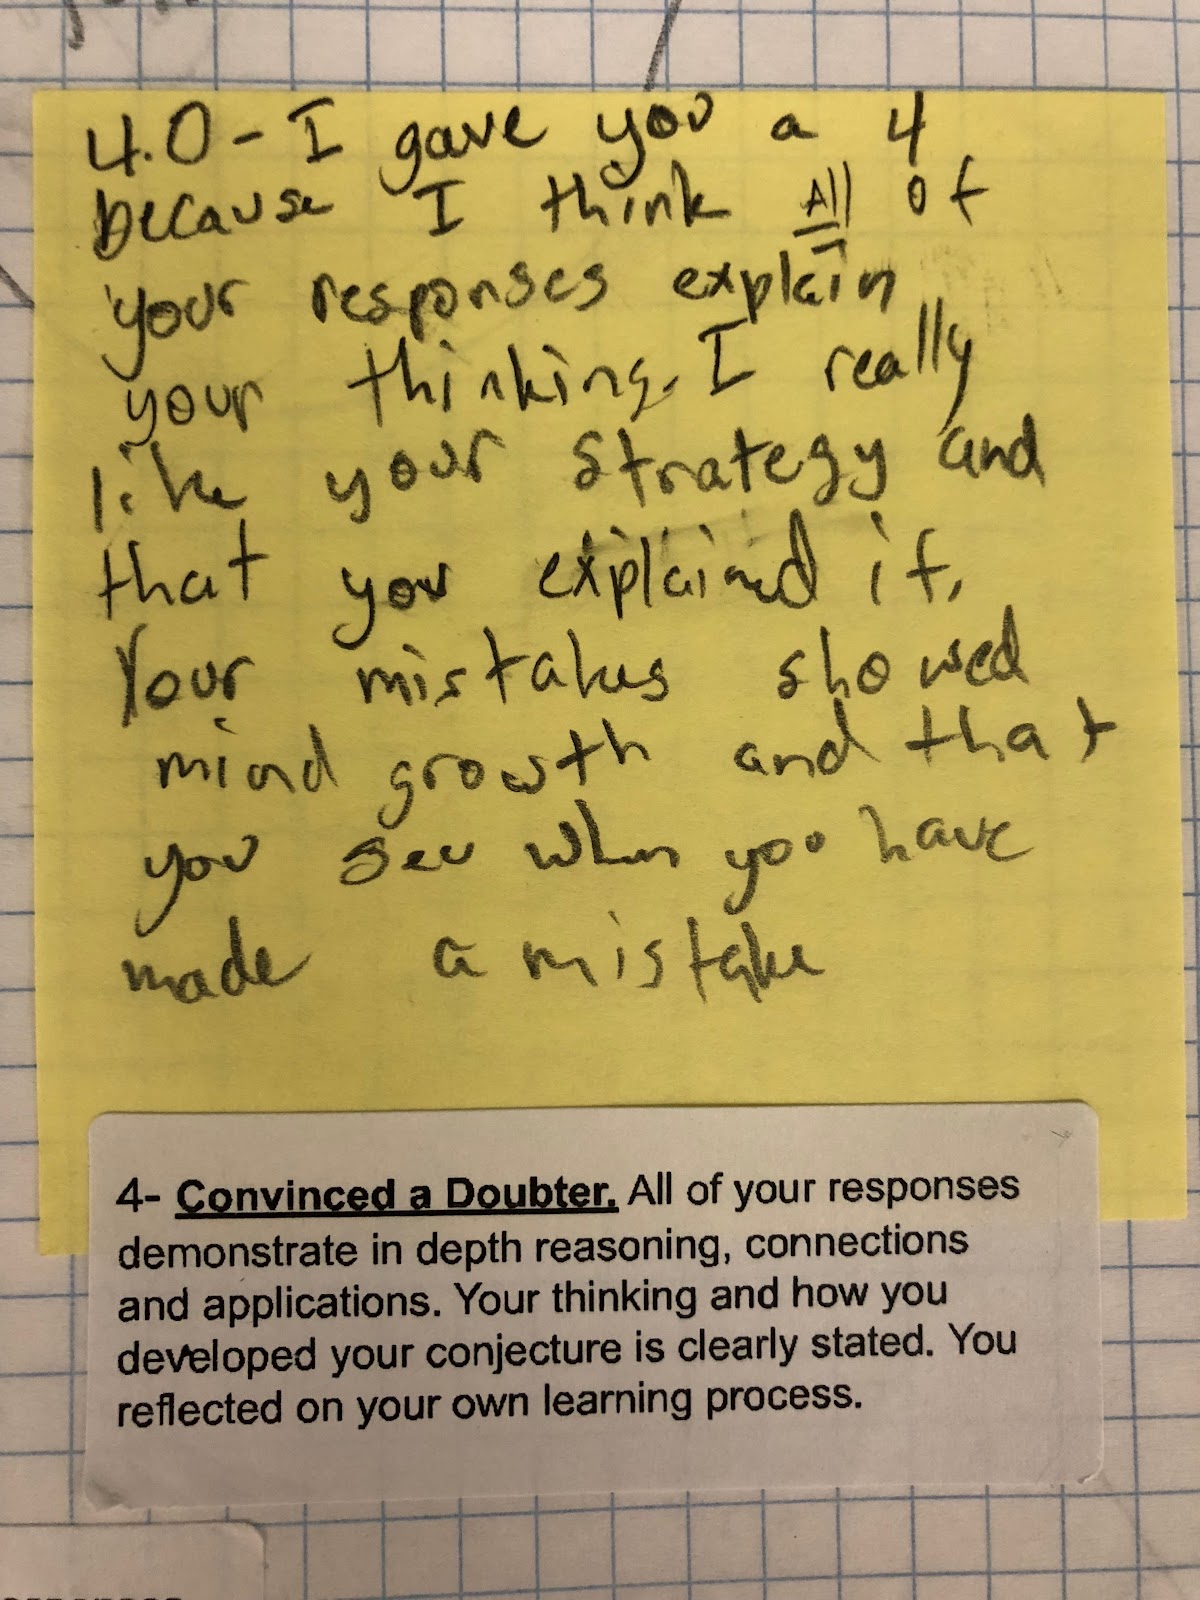 4.0 - I gave you a 4
because I think All of
your responses explain
your thinking. I really
like your strategy and
that you explained it.
Your mistakes showed
mind growth and that
you see when you have
made a mistake
4- Convinced a Doubter. All of your responses
demonstrate in depth reasoning, connections
and applications. Your thinking and how you
developed your conjecture is clearly stated. You
reflected on your own learning process.